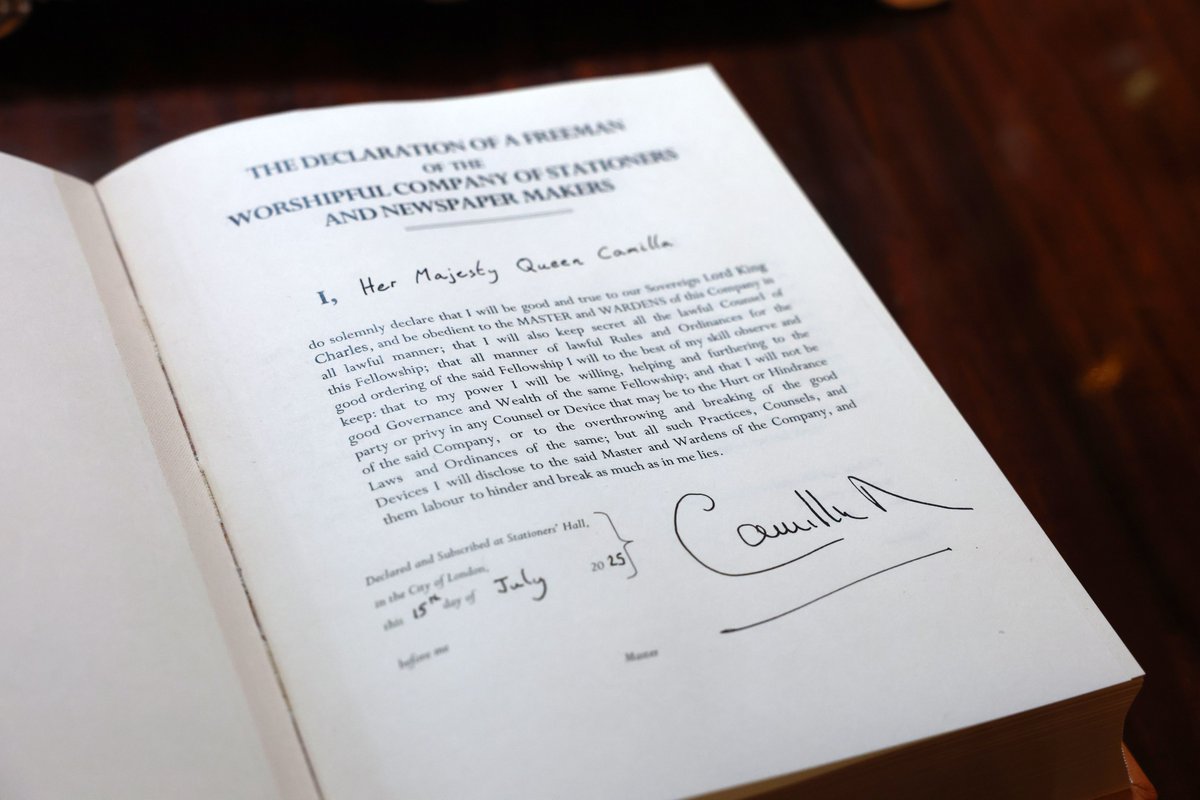 THE DECLARATION OF A FREEMAN
OF THE
WORSHIPFUL COMPANY OF STATIONERS
AND NEWSPAPER MAKERS
I, Her Majesty Queen Camilla
do solemnly declare that I will be good and true to our Sovereign Lord King
Charles, and be obedient to the MASTER and WARDENS of this Company in
all lawful manner; that I will also keep secret all the lawful Counsel of
this Fellowship; that all manner of lawful Rules and Ordinances for the
good ordering of the said Fellowship I will to the best of my skill observe and
keep: that to my power I will be willing, helping and furthering to the
good Governance and Wealth of the same Fellowship; and that I will not be
party or privy in any Counsel or Device that may be to the Hurt or Hindrance
of the said Company, or to the overthrowing and breaking of the good
Laws and Ordinances of the same; but all such Practices, Counsels, and
Devices I will disclose to the said Master and Wardens of the Company, and
them labour to hinder and break as much as in me lies.
Declared and Subscribed at Stationers' Hall,
in the City of London,
this 15th day of July 2025
Camilla R
before me Master